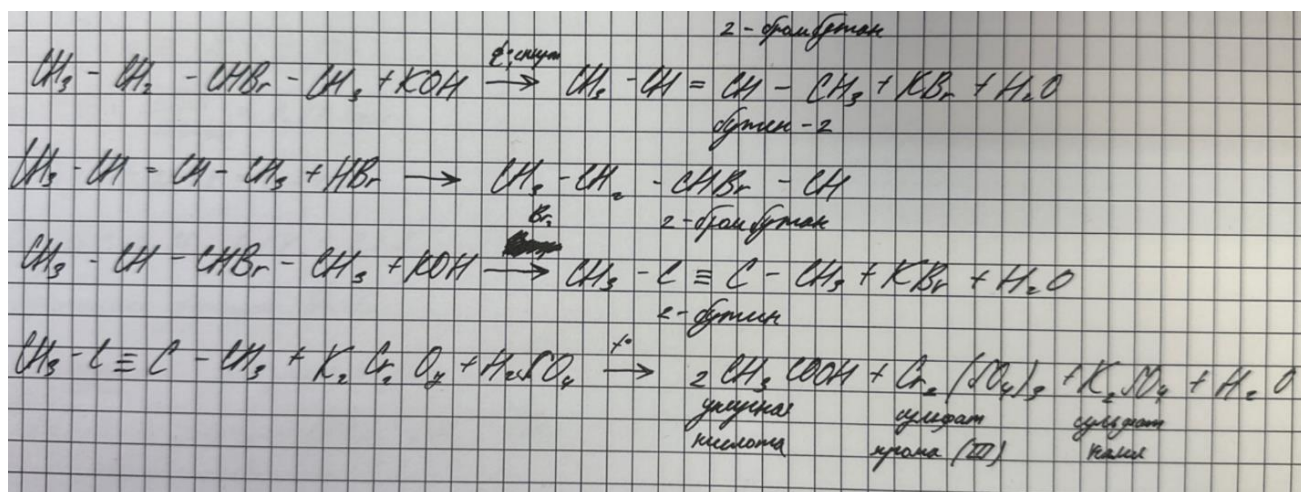 2-бромбутан
t°; спирт
CH₃ - CH₂ - CHBr - CH₃ + KOH → CH₃ - CH = CH - CH₃ + KBr + H₂O
бутен-2
CH₃ - CH = CH - CH₃ + HBr → CH₃ - CH₂ - CHBr - CH
2-бромбутан
Br₂
CH₃ - CH - CHBr - CH₃ + KOH → CH₃ - C ≡ C - CH₃ + KBr + H₂O
2-бутин
t°
CH₃ - C ≡ C - CH₃ + K₂Cr₂O₇ + H₂SO₄ → 2CH₃COOH + Cr₂(SO₄)₃ + K₂SO₄ + H₂O
уксусная сульфат сульфат
кислота хрома (III) калия